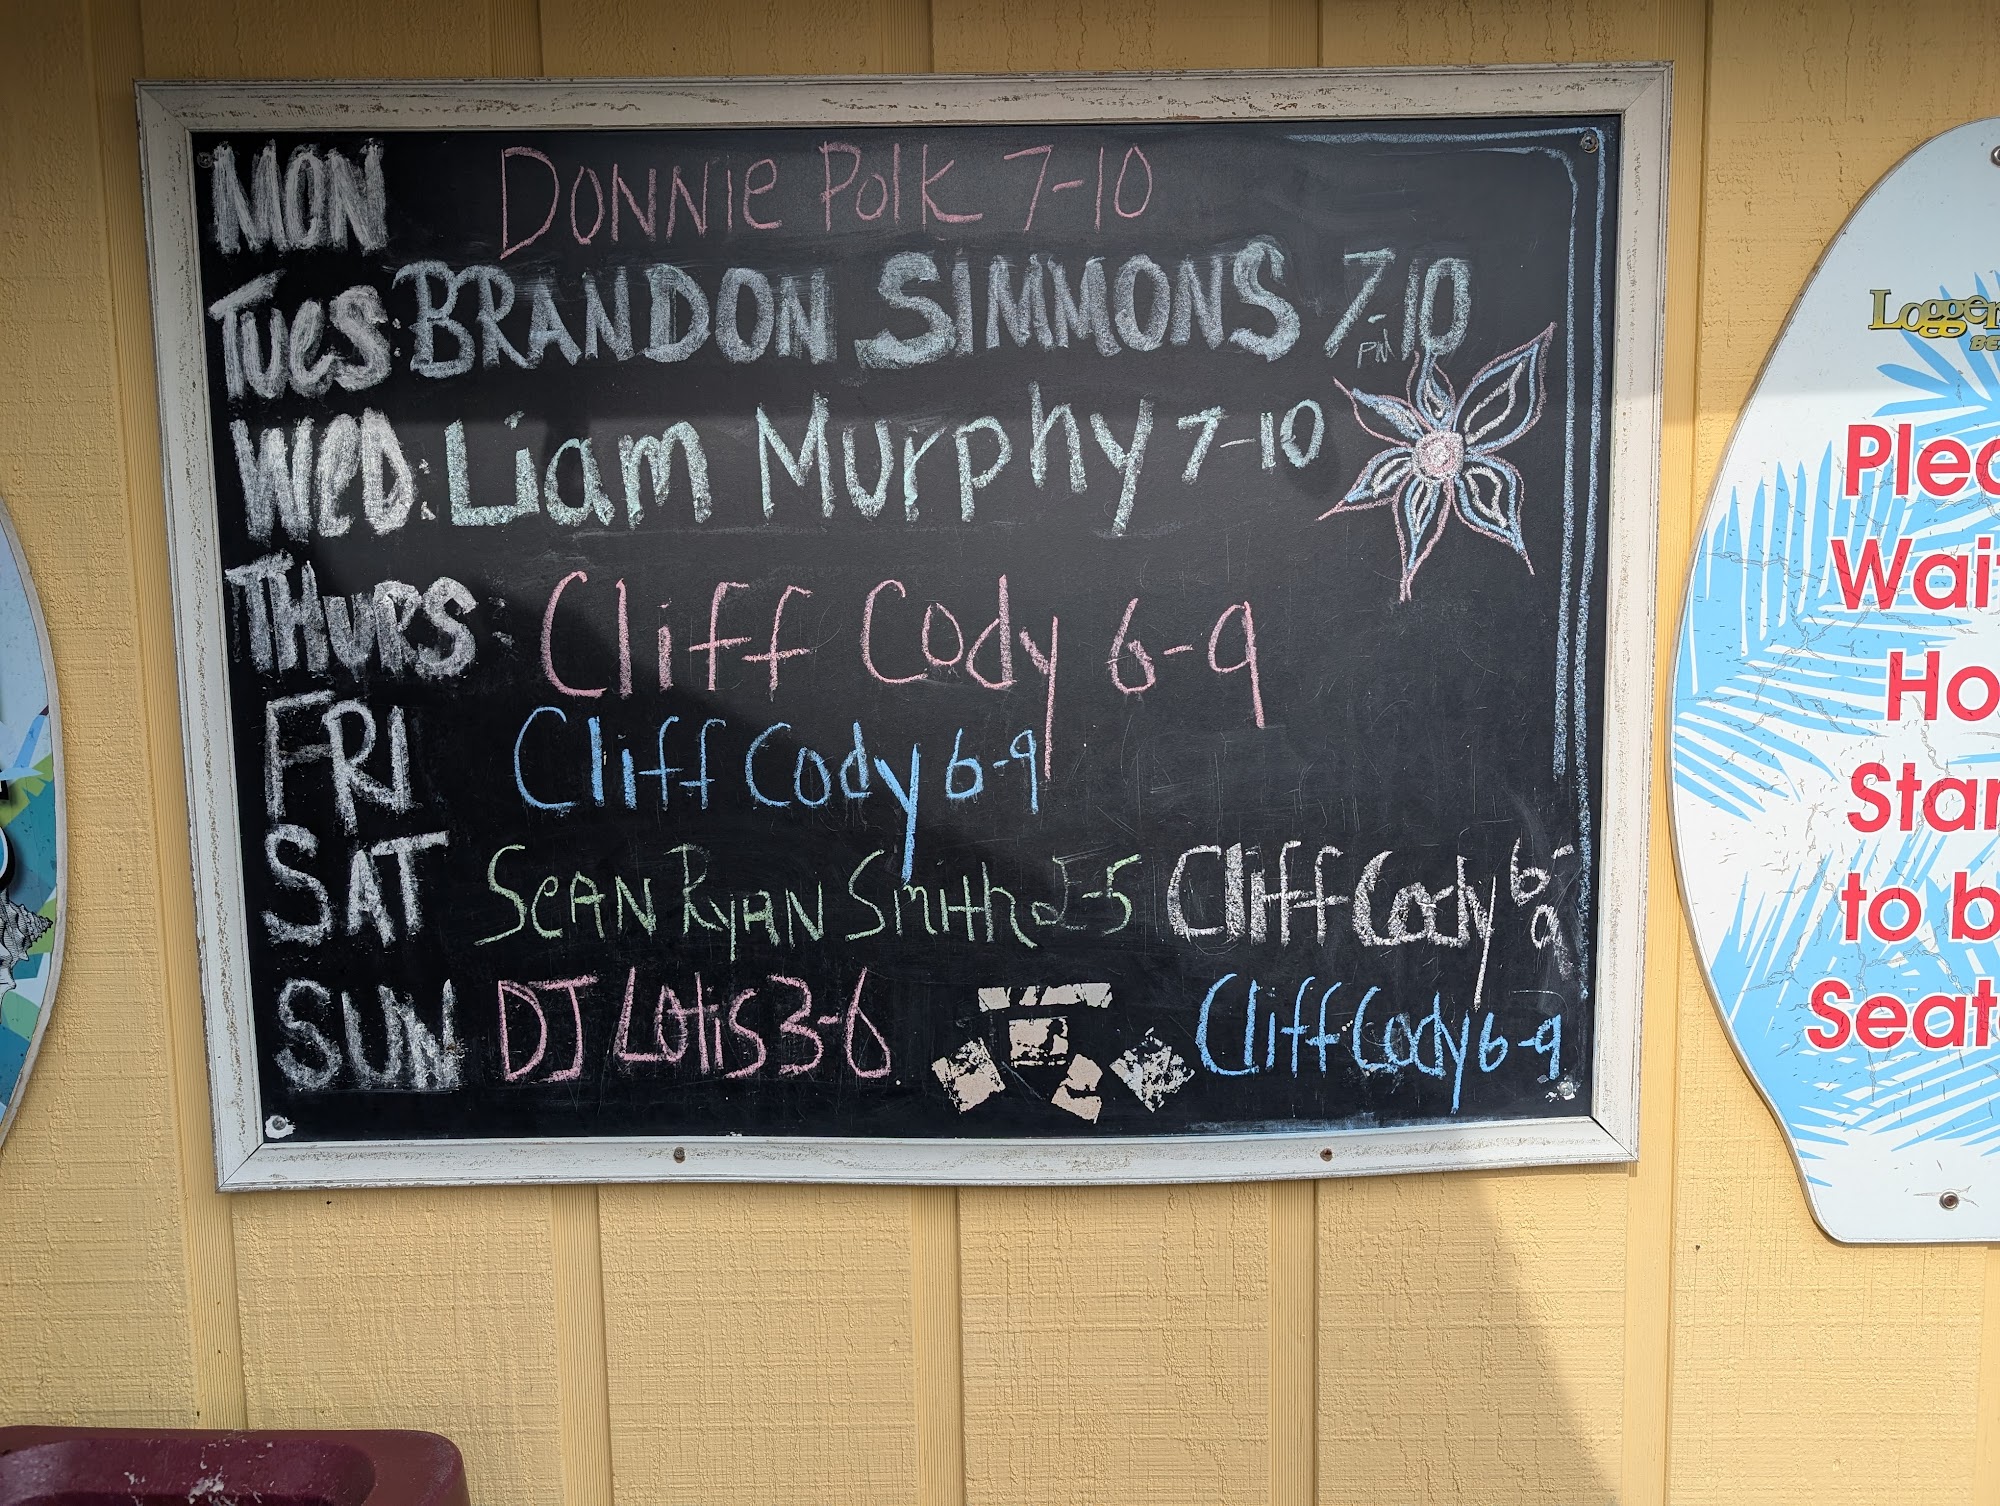 MON Donnie Polk 7-10
Tues: BRANDON SIMMONS 7-10
PM
WeD: Liam Murphy 7-10
THURS: Cliff Cody 6-9
FRI Cliff Cody 6-9
SAT SeAN RyAN Smith 2-5 Cliff Cody 6-9
SUN DJ Lotis 3-6 Cliff Cody 6-9